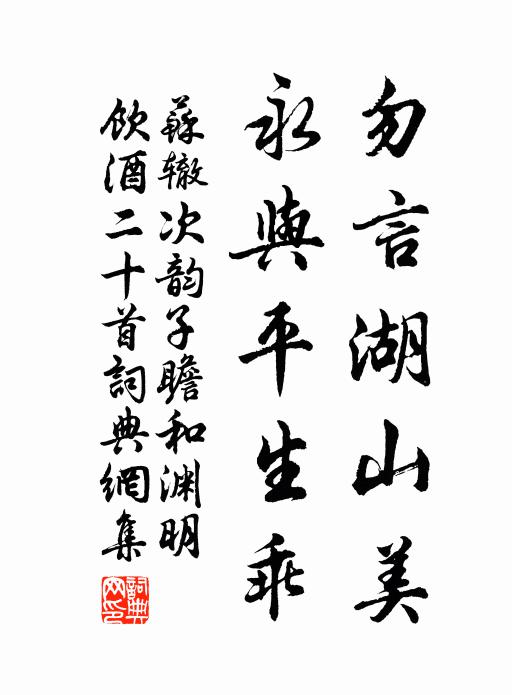 勿言湖山美
永與平生乖
蘇轍次韵子瞻和渊明
飲酒二十首詞典網集
詞典
网印